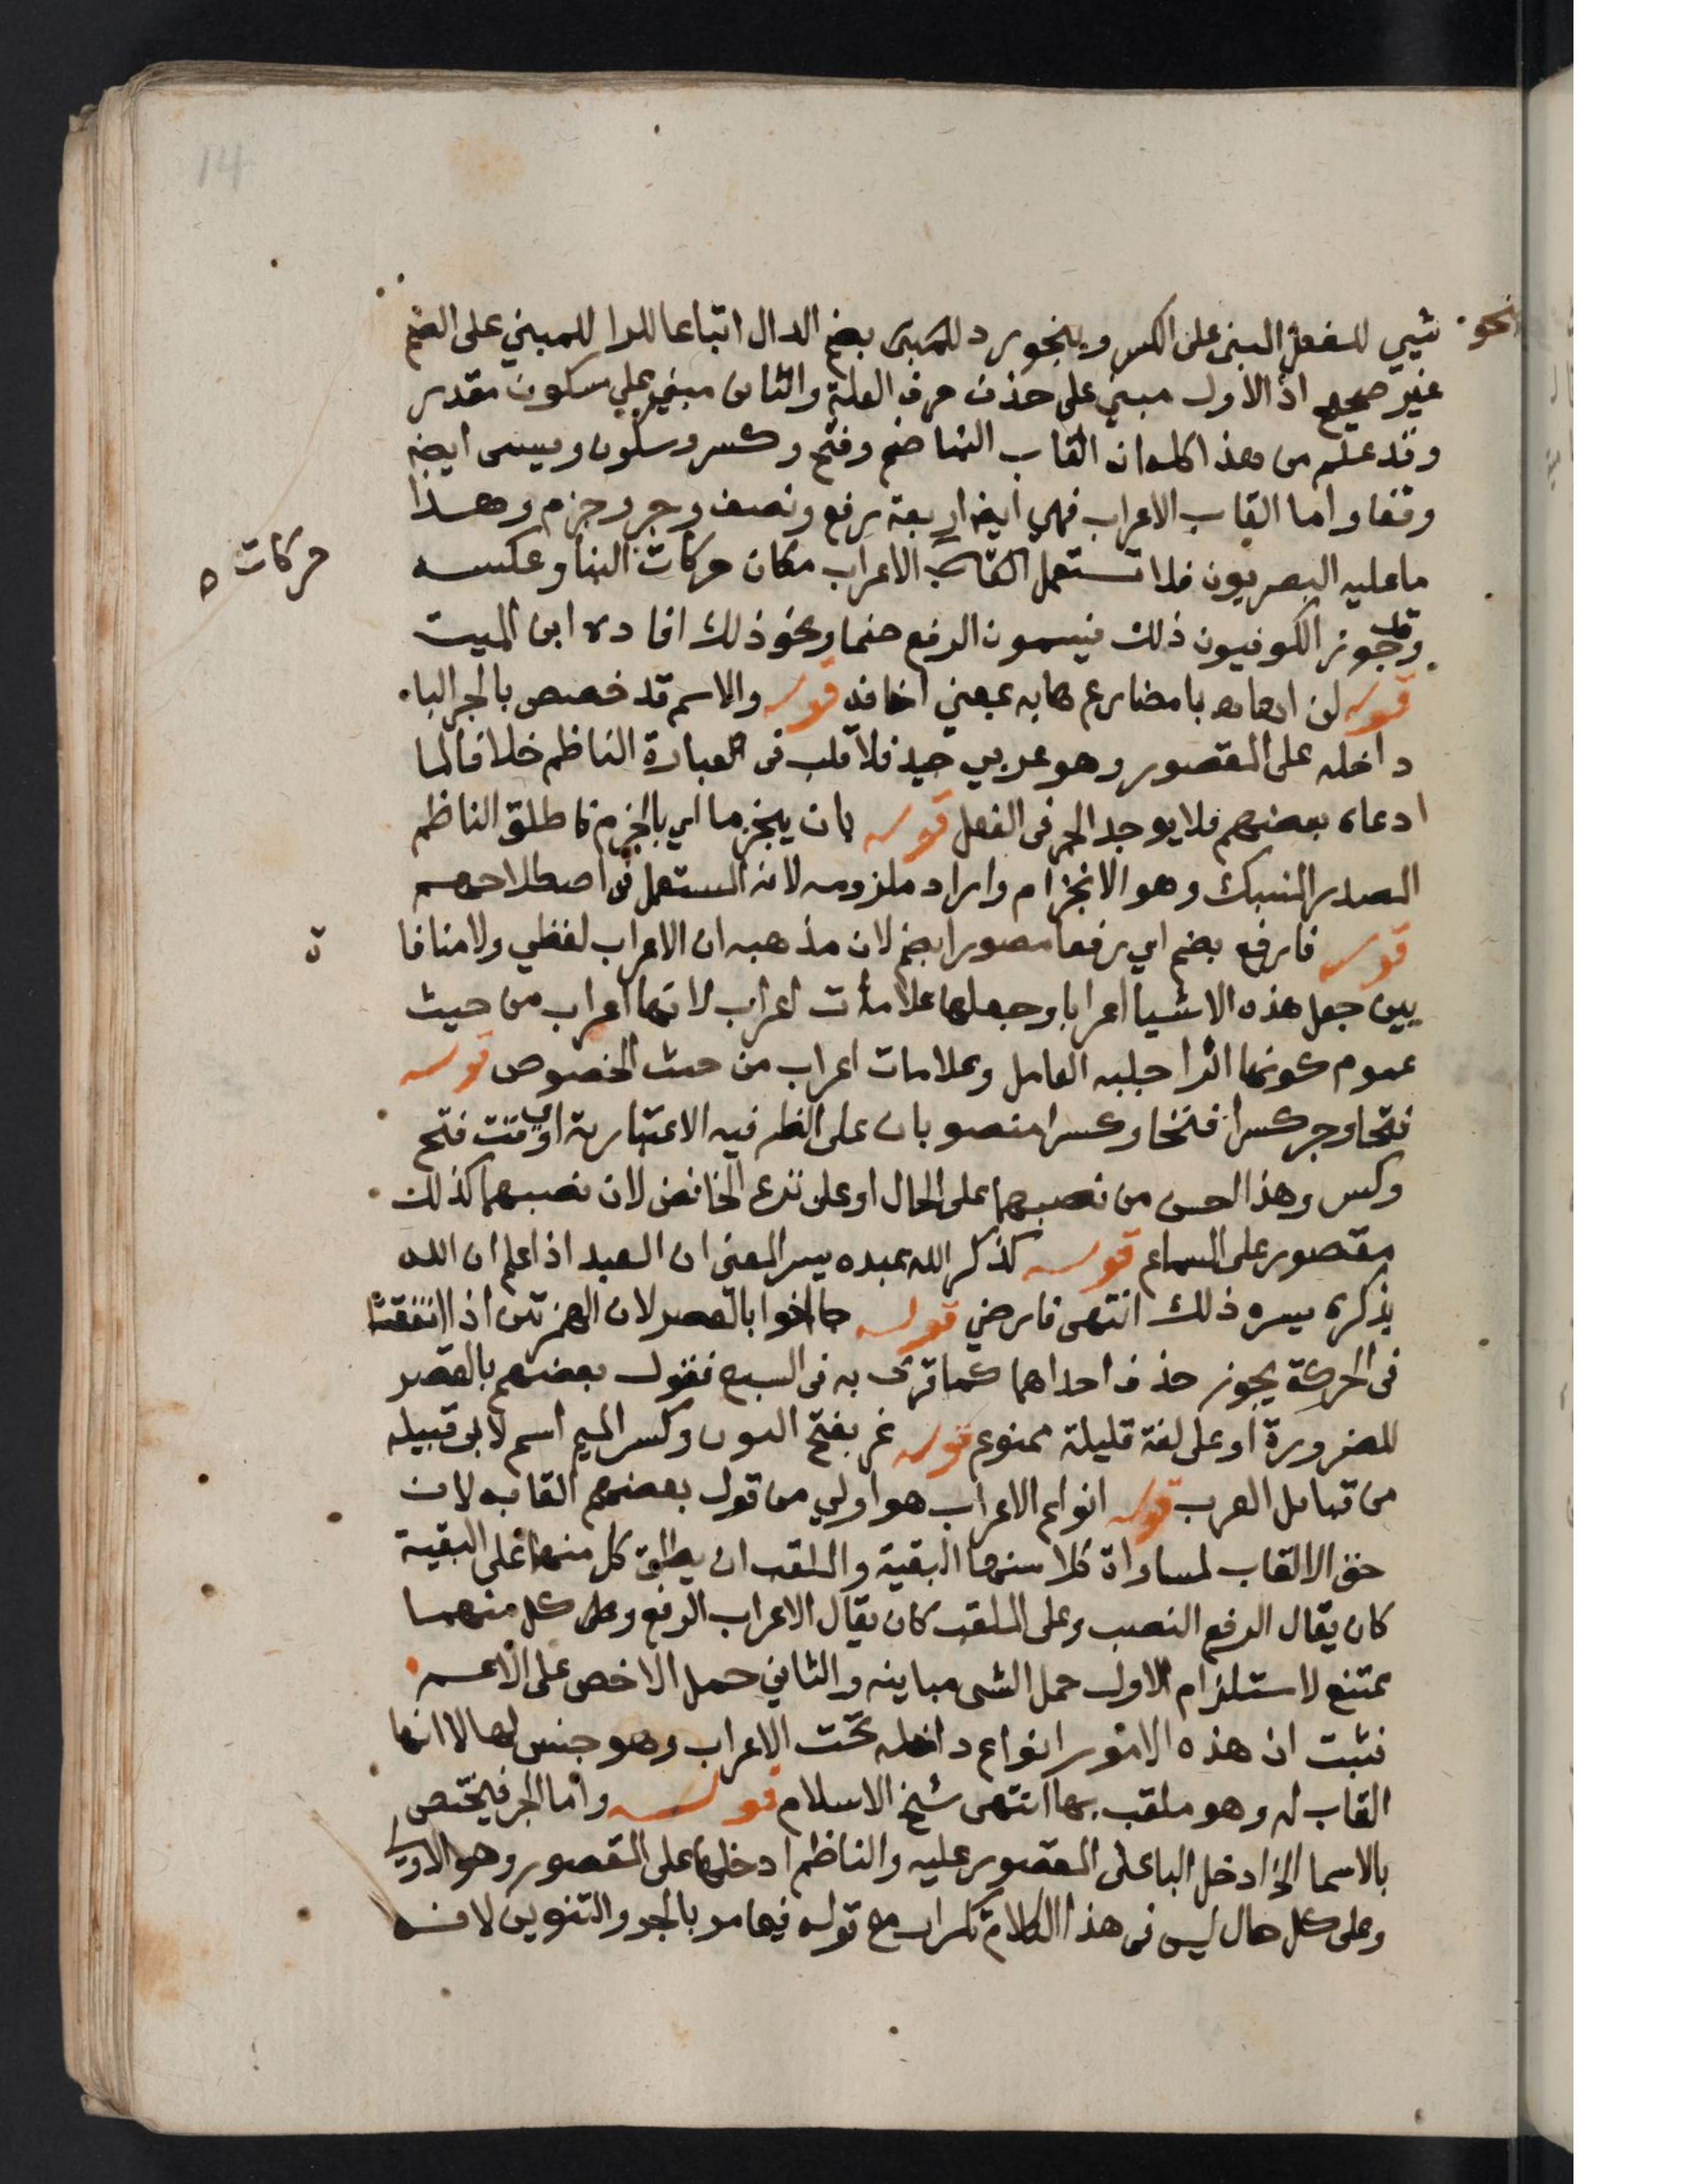 نحو
شيي للفعل المبني على الكسر وبنحو رد للمبني بضم الدال اتباعا للرا للمبني على الضم
غير صحيح اذ الاول مبني على حذف حرف العلة والثانى مبني على سكون مقدر
وقد علم من هذا كله ان القاب البنا ضم وفتح وكسر وسكون ويسمى ايضا
وقفا واما القاب الاعراب فهي ايضا اربعة رفع ونصب وجر وجزم وهذا
ما عليه البصريون فلا تستعمل القاب الاعراب مكان حركات البنا وعكسه
حركات
وقد جوز الكوفيون ذلك فيسمون الرفع ضما ونحو ذلك افاده ابن الميت
قوله لن اهابا مضارع هابه بمعني اخافه قوله والاسم قد خصص بالجر البا
داخله على المقصور وهو عربي جيد فلا قلب فى عبارة الناظم خلافا لما
ادعاه بعضهم فلا يوجد الجر فى الفعل قوله بان ينجزما اي بالجزم فاطلق الناظم
المصدر المنسبك وهو الانجزام واراد ملزومه لانه المستعمل فى اصطلاحهم
قوله فارفع بضم اي رفعا مصورا بضم لان مذهبه ان الاعراب لفظي ولا منافا
ة
بين جعل هذه الاشيا اعرابا وجعلها علامات اعراب لانها اعراب من حيث
عموم كونها اثرا جلبه العامل وعلامات اعراب من حيث الخصوص قوله
فتحا وجر كسرا فتحا وكسرا منصوبان على الظرفيه الاعتبارية اي وقت فتح
وكسر وهذا احسن من نصبهما على الحال او على نزع الخافض لان نصبهما كذلك
مقصور على السماع قوله كذكر الله عبده يسر المعنى ان العبد اذا علم ان الله
يذكره يسره ذلك انتهى فارضي قوله جا اخوا بالقصر لان الهمزتين اذا اتفقتا
فى الحركة يجوز حذف احداهما كما قرئ به فى السبع فقول بعضهم بالقصر
للضرورة او على لغة قليلة ممنوع قوله نمر بفتح النون وكسر الميم اسم لابى قبيله
من قبايل العرب قوله انواع الاعراب هو اولي من قول بعضهم القابه لان
حق الالقاب لمساواة كلا منها البقية والملقب ان يطلق كل منها على البقية
كان يقال الرفع النصب وعلى الملقب كان يقال الاعراب الرفع وعلى كل منهما
ممتنع لاستلزام الاول حمل الشى مباينه والثاني حمل الاخص على الاعم
فثبت ان هذه الامور انواع داخله تحت الاعراب وهو جنس لها لا انها
القاب له وهو ملقب بها انتهى شيخ الاسلام قوله واما الجر فيختص
بالاسما الخ ادخل البا على المقصور عليه والناظم ادخلها على المقصور وهو الاولي
وعلى كل حال ليس فى هذا الكلام تكرار مع قوله فيما مر بالجر والتنوين لانه